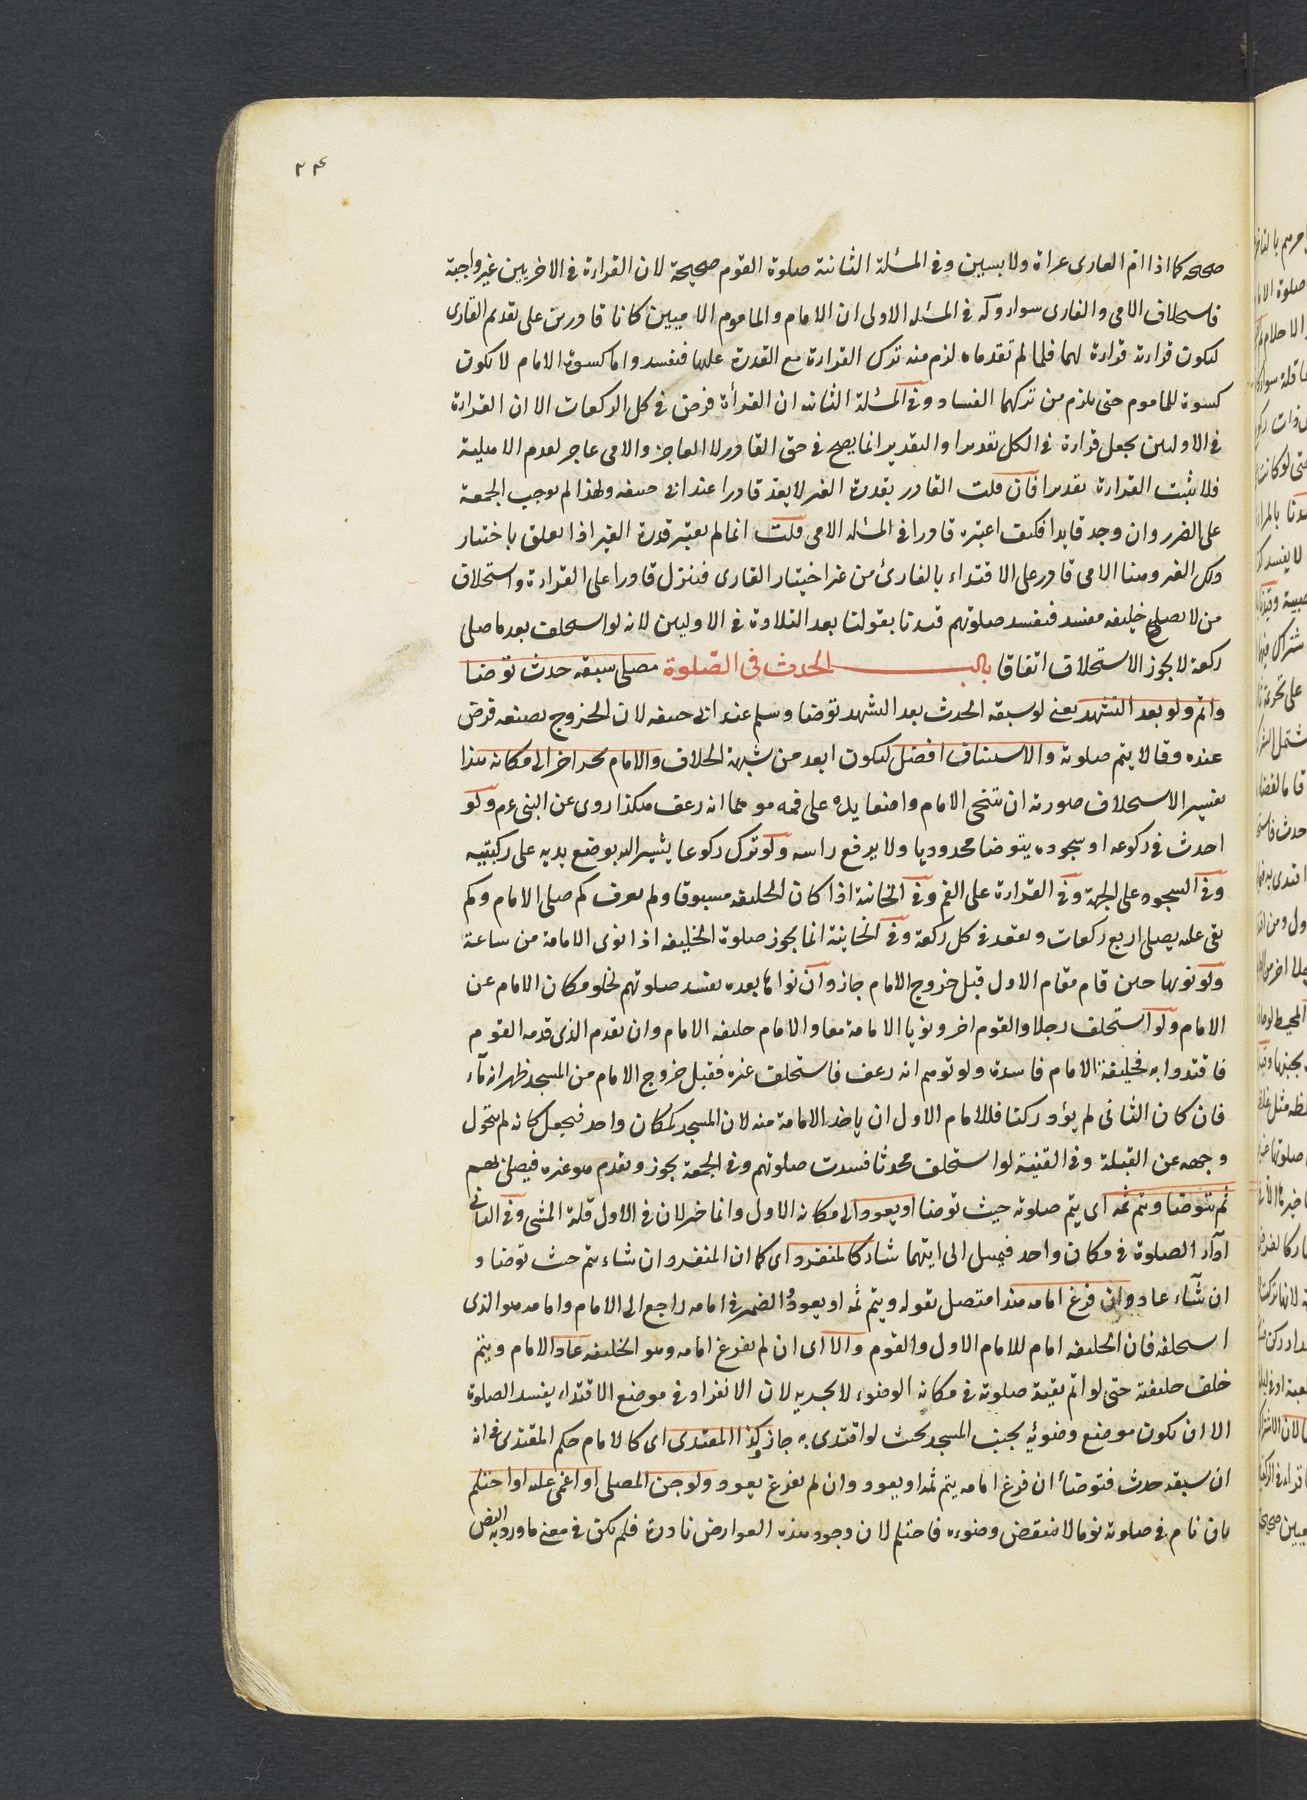 ٣٤
صحيحة كما اذا ام العارى عراة ولابسين وفى المسئلة الثانية صلوة القوم صحيحة لان القراءة فى الاخريين غير واجبة
فاستخلاف الامى والقارى سواء وله فى المسئلة الاولى ان الامام والماموم الاميين كانا قادرين على تقديم القارى
لتكون قراءته قراءة لهما فلما لم تقدماه لزم منه ترك القراءة مع القدرة عليها فتفسد واما كسوة الامام لا تكون
كسوة للماموم حتى يلزم من تركهما الفساد وفى المسئلة الثانية ان القرأة فرض فى كل الركعات الا ان القراءة
فى الاوليين يجعل قراءة فى الكل تقديرا والتقدير انما يصح فى حق القادر لا العاجز والامى عاجز لعدم الاهلية
فلا يثبت القراءة تقديرا فان قلت القادر بقدرة الغير لا يعد قادرا عند ابى حنيفه ولهذا لم يوجب الجمعة
على الضرير وان وجد قايدا فكيف اعتبره قادرا فى المسئلة الامى قلت انما لم يعتبر قدرة الغير اذا تعلق باختيار
ذلك الغير وهنا الامى قادر على الاقتداء بالقارئ من غير اختيار القارى فينزل قادرا على القراءة واستخلاف
من لا يصلح خليفه مفسد فتفسد صلوتهم قيدنا بقولنا بعد التلاوة فى الاوليين لانه لو استخلف بعد ما صلى
ركعة لا يجوز الاستخلاف اتفاقا باب الحدث فى الصّلوة مصلى سبقه حدث توضا
واتم ولو بعد التشهد يعنى لو سبقه الحدث بعد التشهد توضا وسلم عند ابى حنيفه لان الخروج بصنعه فرض
عنده وقالا يتم صلوته والاستيناف افضل ليكون ابعد من شبهة الخلاف والامام يجر اخر الى مكانه هذا
تفسير الاستخلاف صورته ان يتنحى الامام واضعا يده على فمه موهما انه رعف هكذا روى عن النبى عم ولو
احدث فى ركوعه او سجوده يتوضا محدوديا ولا يرفع راسه ولو ترك ركوعا يشير اليه بوضع يديه على ركبتيه
وفى السجود على الجبهة وفى القراءة على الفم وفى الخانية اذا كان الخليفه مسبوقا ولم يعرف كم صلى الامام وكم
بقى عليه يصلى اربع ركعات ويقعد فى كل ركعة وفى الخانية انما يجوز صلوة الخليفه اذا نوى الامامة من ساعة
ولو نويها حين قام مقام الاول قبل خروج الامام جاز وان نواها بعده تفسد صلوتهم لخلو مكان الامام عن
الامام ولو استخلف رجلا والقوم اخر ونويا الامامة معا والامام خليفه الامام وان تقدم الذى قدمه القوم
فاقتدوا به فخليفة الامام فاسدة ولو توهم انه رعف فاستخلف غيره فقبل خروج الامام من المسجد ظهر انه ماء
فان كان الثانى لم يؤد ركنا فللامام الاول ان ياخذ الامامة منه لان المسجد كمكان واحد فيجعل كانه لم يتحول
وجهه عن القبلة وفى القنية لو استخلف محدثا فسدت صلوتهم وفى الجمعة يجوز ويقدم هو غيره فيصلى بهم
ثم يتوضا ويتم ثمه اى يتم صلوته حيث توضا او يعود الى مكانه الاول وانما خير لان فى الاول قلة المشى وفى الثانى
اداء الصلوة فى مكان واحد فيميل الى ايتهما شاء كالمنفرد اى كما ان المنفرد ان شاء يتم حيث توضا و
ان شآء عاد وان فرغ امامه هذا متصل بقوله ويتم ثمه او يعود والضمير فى امامه راجع الى الامام وامامه هو الذى
استخلفه فان الخليفه امام للامام الاول والقوم والا اى ان لم يفرغ امامه وهو الخليفه عاد الامام ويتم
خلف خليفته حتى لو اتم بقية صلوته فى مكانه الوضوء لا يجديه لان الانفراد فى موضع الاقتداء يفسد الصلوة
الا ان يكون موضع وضوئه بجنب المسجد بحيث لو اقتدى به جاز وكذا المقتدى اى كالامام حكم المقتدى فى انه
ان سبقه حدث فتوضأ ان فرغ امامه يتم ثمه او يعود وان لم يفرغ يعود ولو جن المصلى او اغمى عليه او احتلم
بان نام فى صلوته نوما لا ينقض وضوءه فاحتلم لان وجود هذه العوارض نادرة فلم يكن فى معنى ما ورد به النص